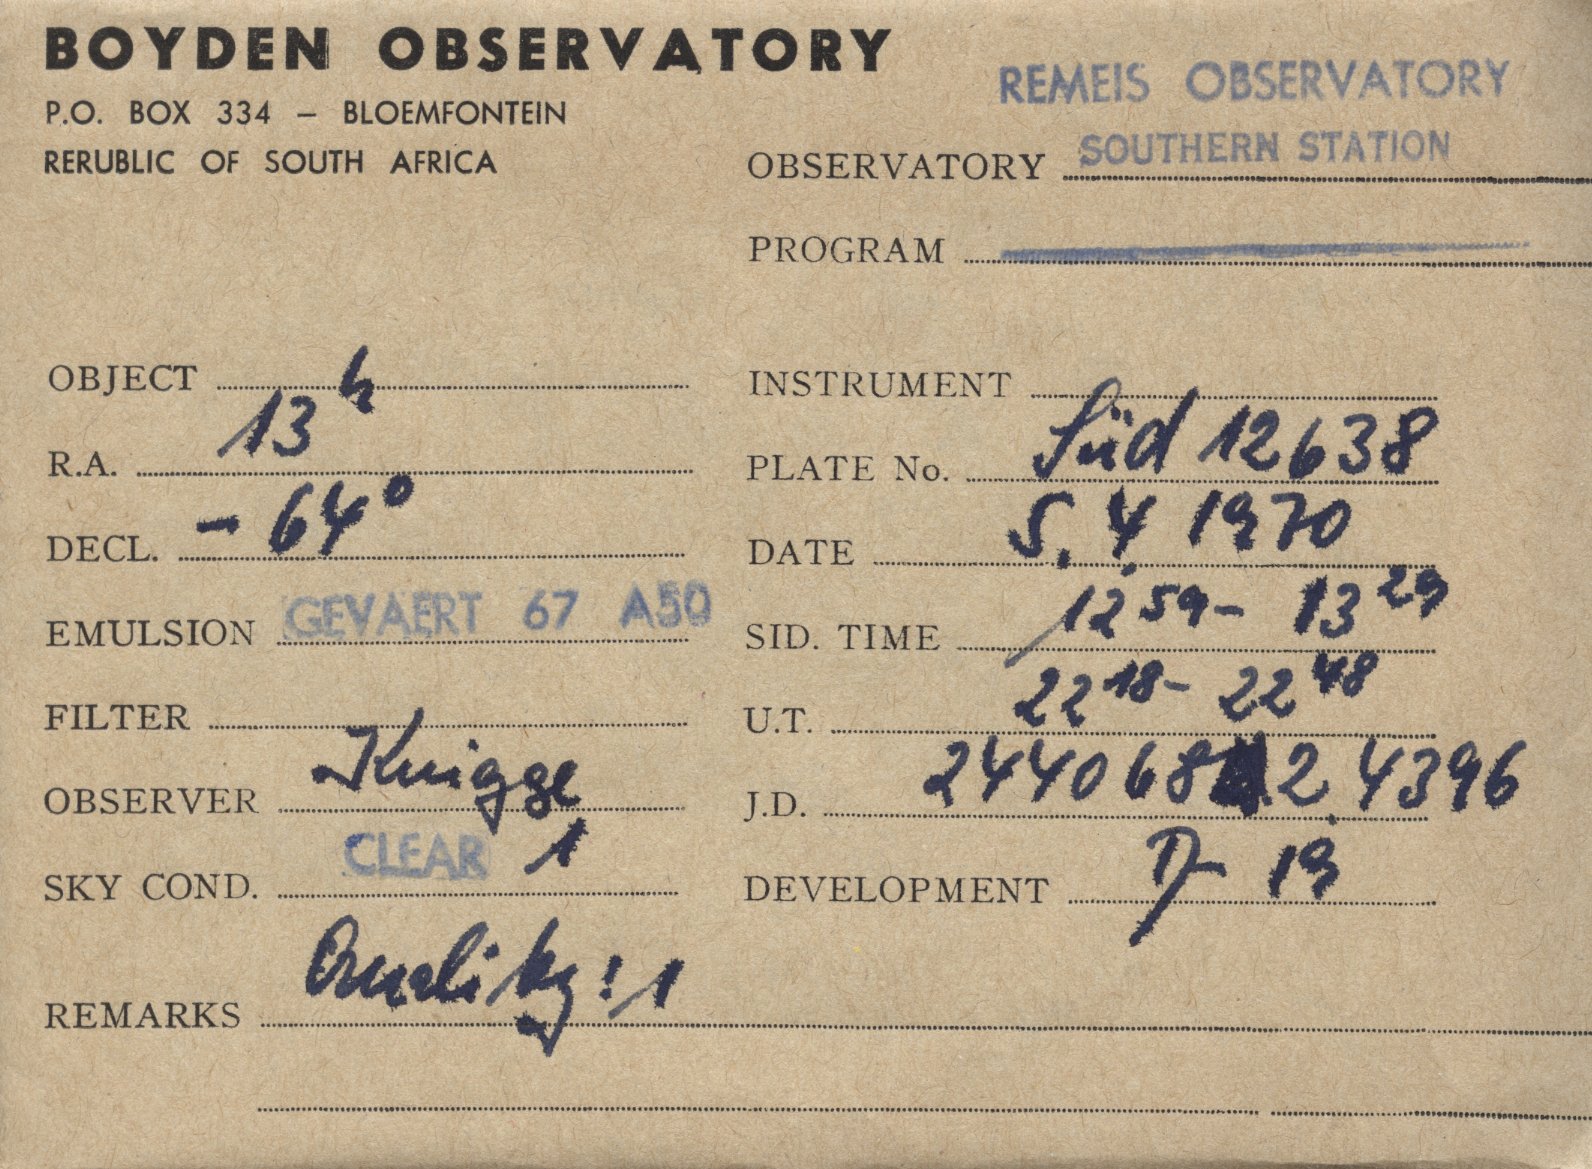 BOYDEN OBSERVATORY
P.O. BOX 334 – BLOEMFONTEIN
RERUBLIC OF SOUTH AFRICA
REMEIS OBSERVATORY
OBSERVATORY SOUTHERN STATION
PROGRAM
OBJECT
R.A. 13h
DECL. - 64°
EMULSION GEVAERT 67 A50
FILTER
OBSERVER Knigge
SKY COND. CLEAR 1
REMARKS Quality: 1
INSTRUMENT
PLATE No. Süd 12638
DATE 5. 4. 1970
SID. TIME 12 59 - 13 29
U.T. 22 18 - 22 48
J.D. 2440682.4396
DEVELOPMENT D 19